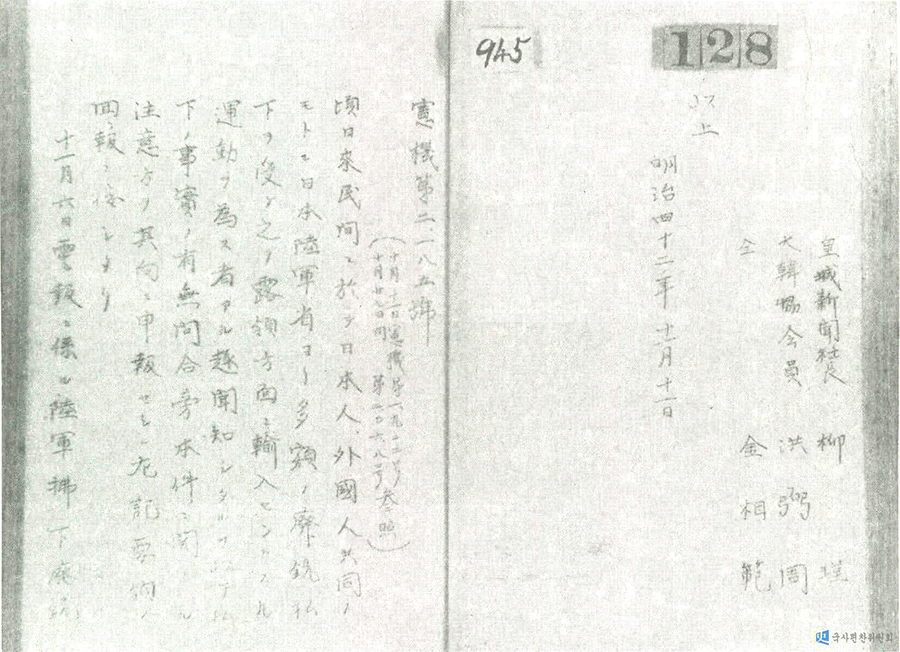 128
945
皇城新聞社長 柳 瑾
大韓協会員 洪弼周
仝 金相範
以上
明治四十二年十一月十一日
憲機第二一八五號
(十月十一日憲機第一九二二号
十月廿七日同 第二〇六八号参照)
頃日來民間ニ於テ日本人、外國人共同ノ
モトニ日本陸軍省ヨリ多額ノ廃銃払
下ヲ受ケ之ヲ露領方面ニ輸入セントスル
運動ヲ為ス者アル趣聞知シタル
下ノ事實ノ有無問合旁本件ニ関スル
注意方ヲ其向ニ申報セシニ左記要旨ノ
回報ニ接シタリ
十一月六日電報ニ係ル陸軍拂下廃銃
국사편찬위원회